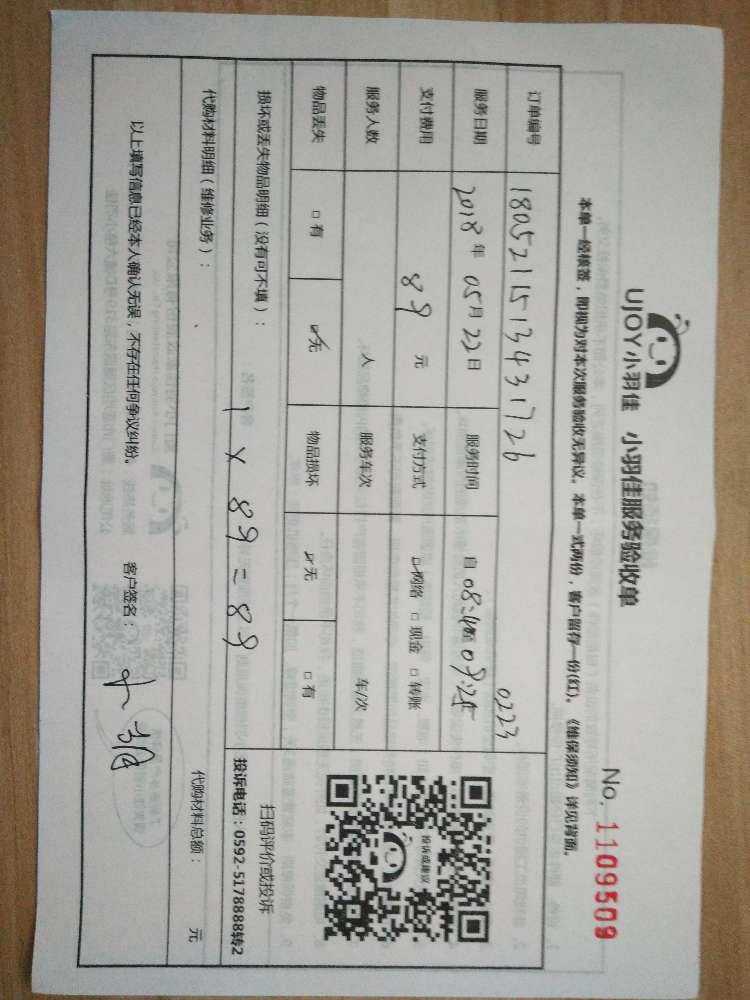 UJOY小羽佳 小羽佳服务验收单
No. 1109509
本单一经核签，即视为对本次服务验收无异议。本单一式两份，客户留存一份(红)。《维保须知》详见背面。
订单编号 180521151343172b 0223
服务日期 2018 年 05 月 22 日 服务时间 自 08: 至
支付费用 89 元 支付方式 网络 □ 现金 □ 转账
服务人数 人 服务车次 车/次
物品丢失 □ 有 无 物品损坏 无 □ 有
投诉或建议
损坏或丢失物品明细（没有可不填）：
1 × 89 = 89
扫码评价或投诉
投诉电话：0592-5178888转2
代购材料明细（维修业务）： 代购材料总额： 元
以上填写信息已经本人确认无误，不存在任何争议纠纷。 客户签名：